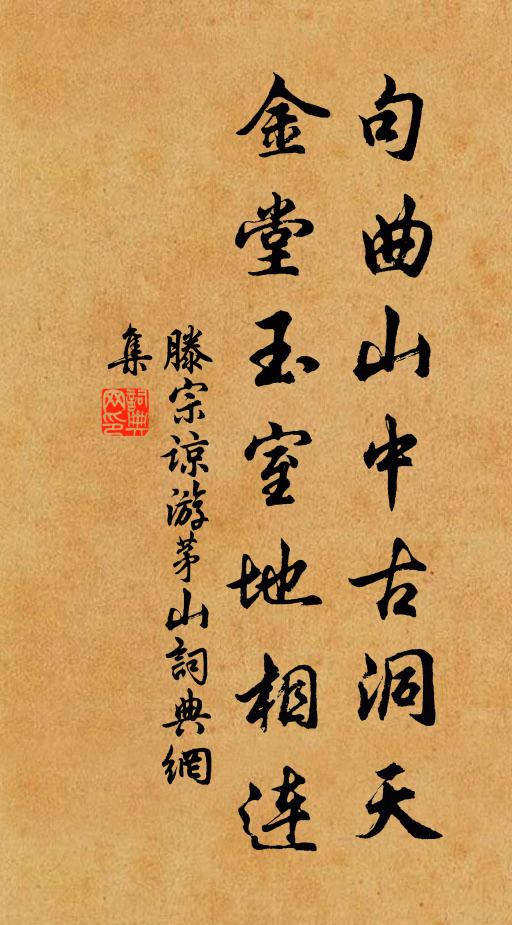 句曲山中古洞天
金堂玉室地相连
滕宗谅游茅山詞典網
集
詞典网印